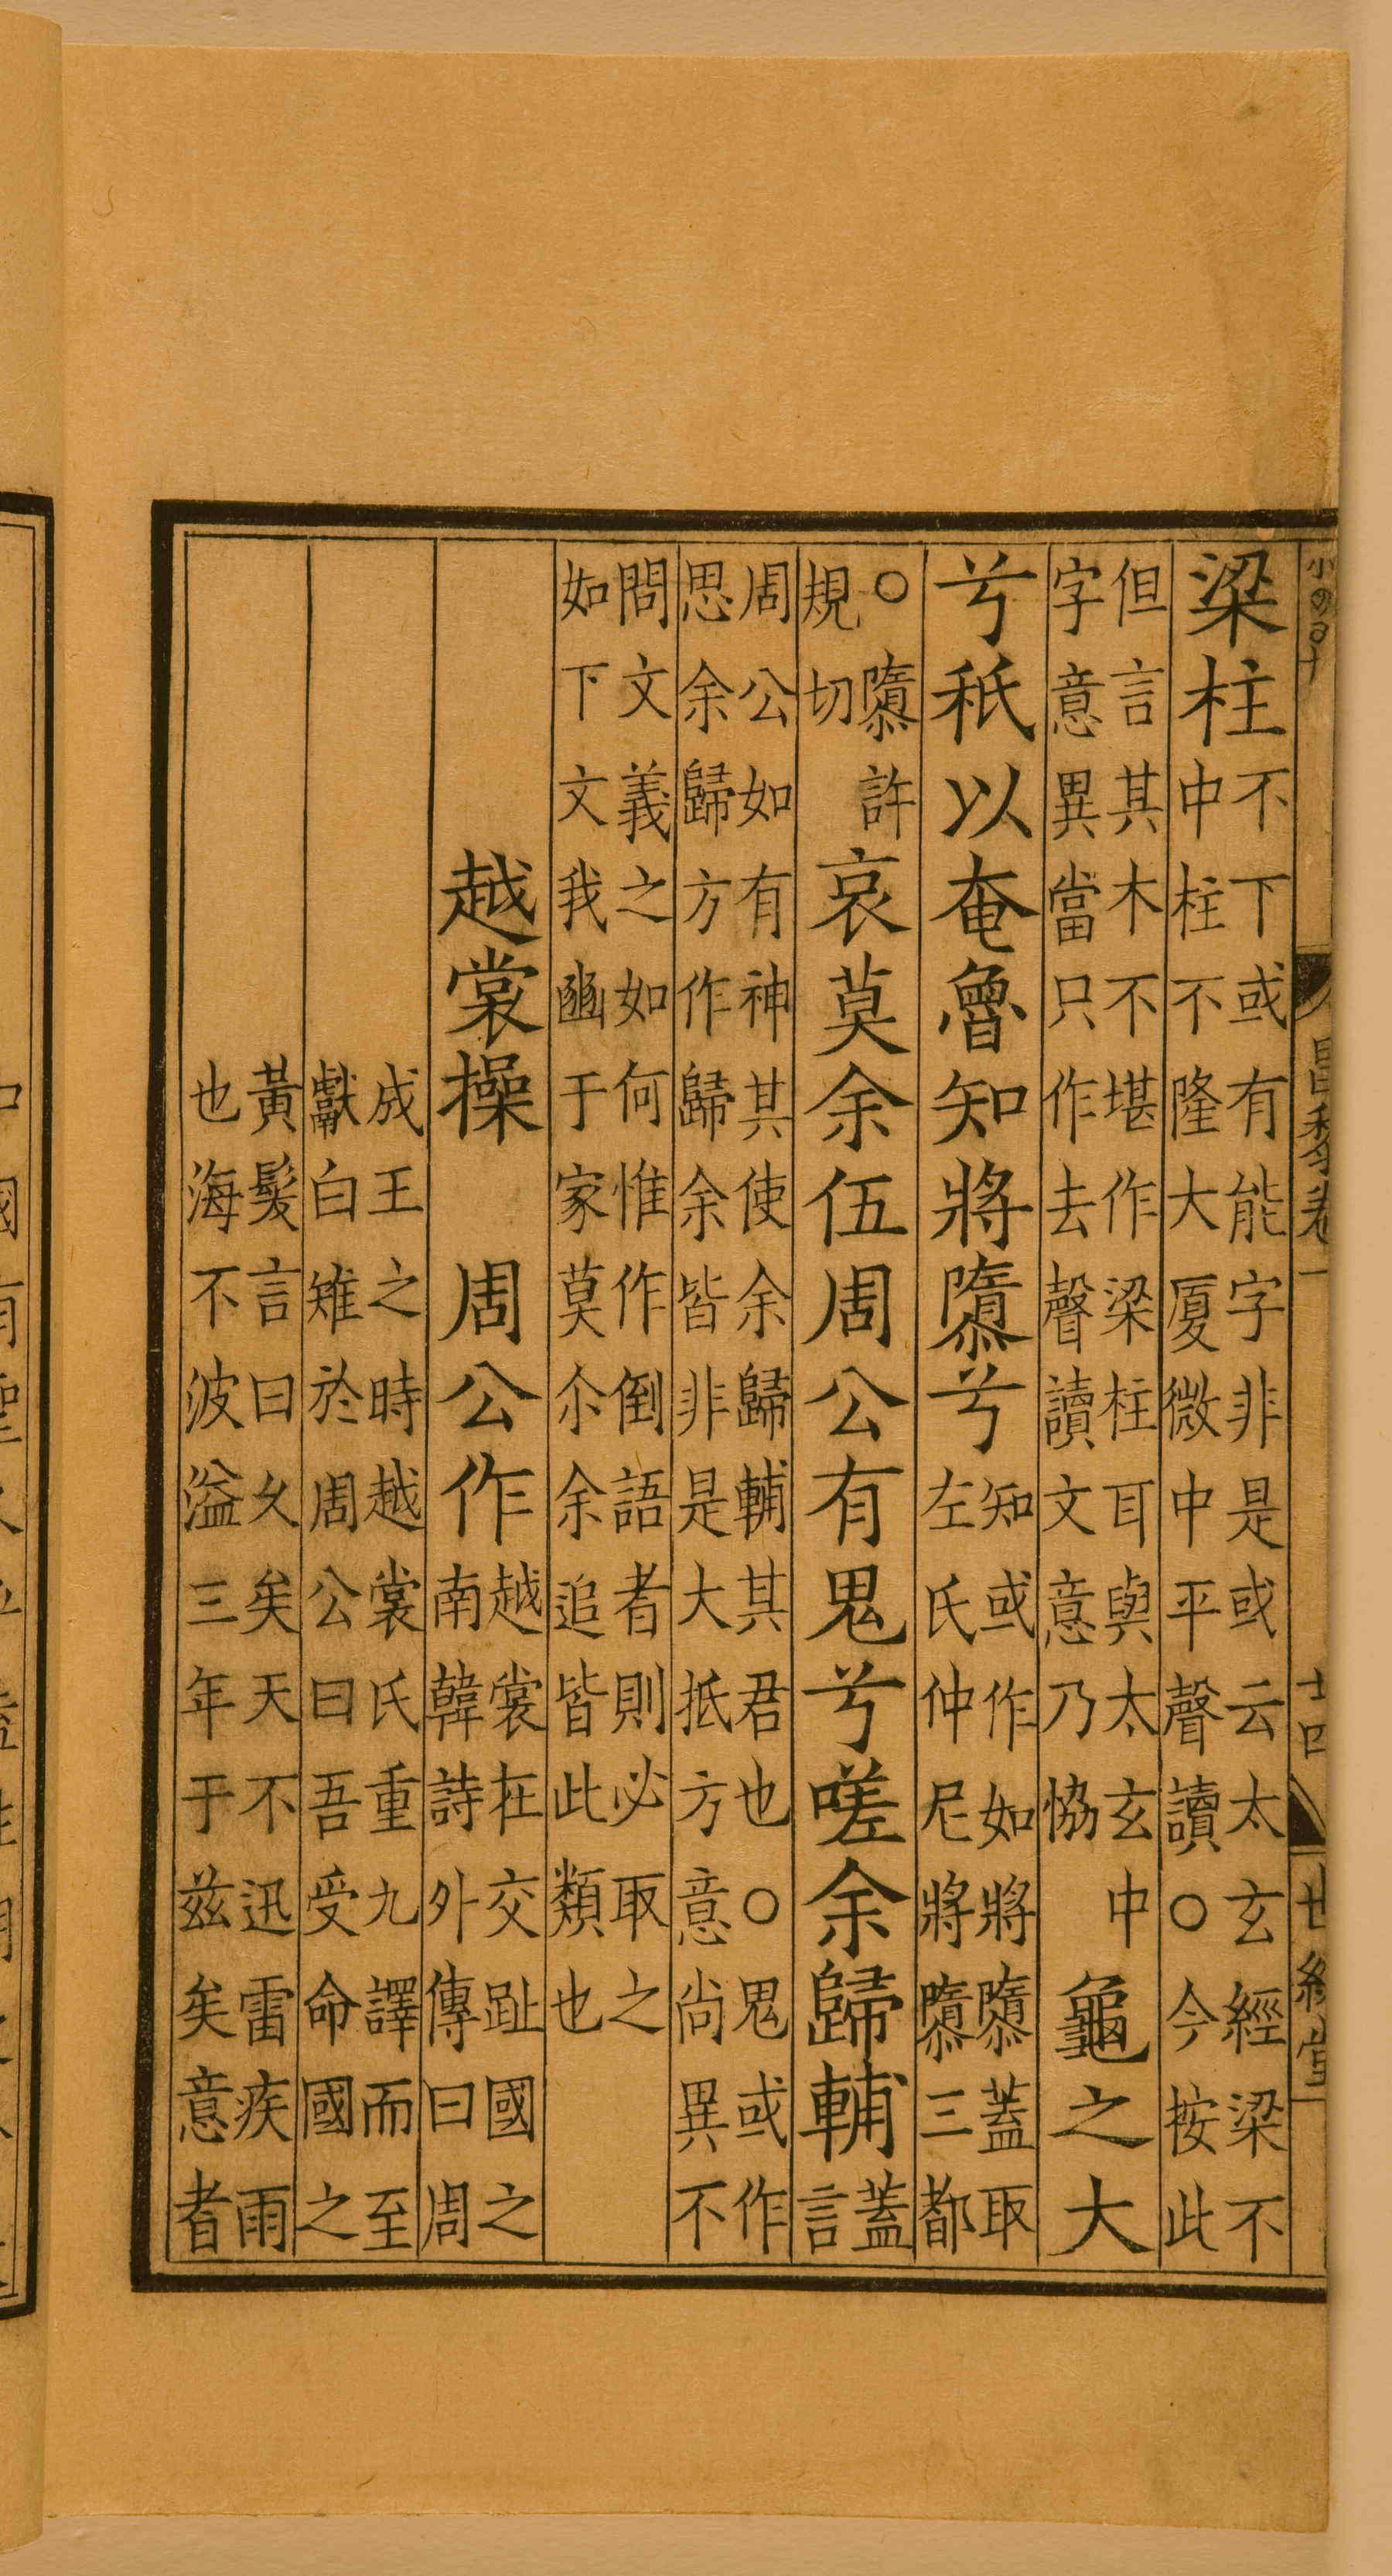 梁柱不下或有能字非是或云太玄經梁不
中柱不隆大厦微中平聲讀○今按此
但言其木不堪作梁柱耳與太玄中
字意異當只作去聲讀文意乃恊龜之大
兮秖以奄魯知將隳兮知或作如將隳蓋取
左氏仲尼將隳三都
○隳許
規切哀莫余伍周公有鬼兮嗟余歸輔蓋
言
周公如有神其使余歸輔其君也○鬼或作
思余歸方作歸余皆非是大抵方意尚異不
問文義之如何惟作倒語者則必取之
如下文我豳于家莫尒余追皆此類也
越裳操 周公作越裳在交趾國之
南韓詩外傳曰周
成王之時越裳氏重九譯而至
獻白雉於周公曰吾受命國之
黃髮言曰乆矣天不迅雷疾雨
也海不波溢三年于兹矣意者
昌黎卷一
十四
世綵堂